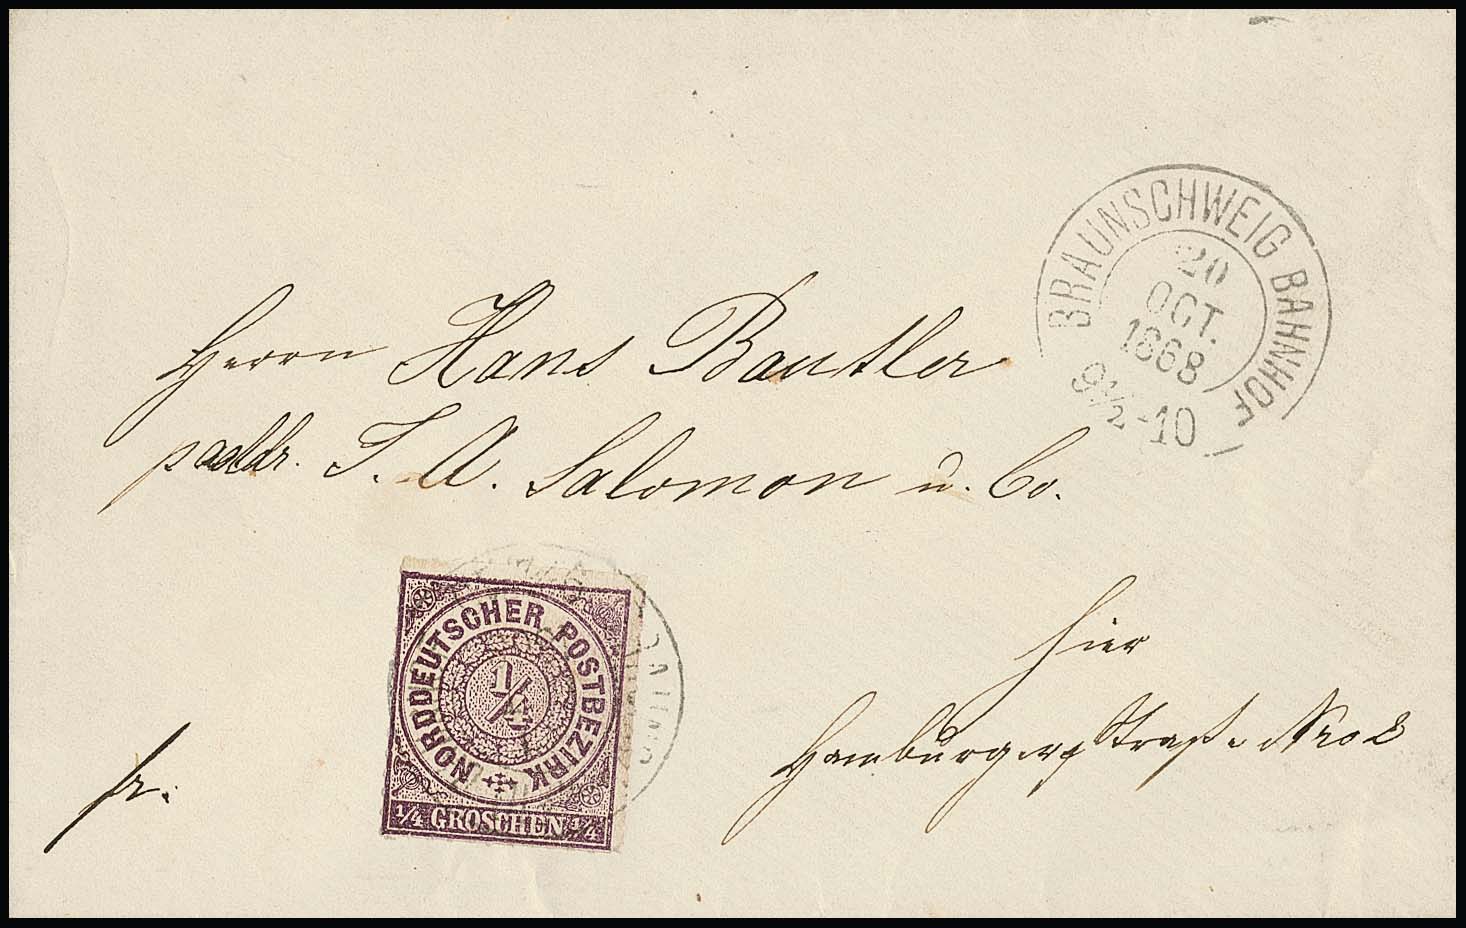 BRAUNSCHWEIG BAHNHOF
20
OCT.
1868
9½-10
Herrn Hans Bautler
p addr. J. A. Salomon u. Co.
hier
Hamburger Straße Nro 2
fr.
NORDDEUTSCHER POSTBEZIRK
1/4
1/4 GROSCHEN 1/4